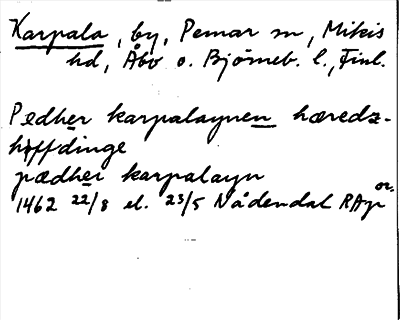 Karpala, by, Pemar sn, Mikis
hd, Åbo o. Björneb. l., Finl.
Pedher karpalaynen hæredz-
höffdinge
pædher karpalayn
1462 22/8 el. 23/5 Nådendal RAp or.